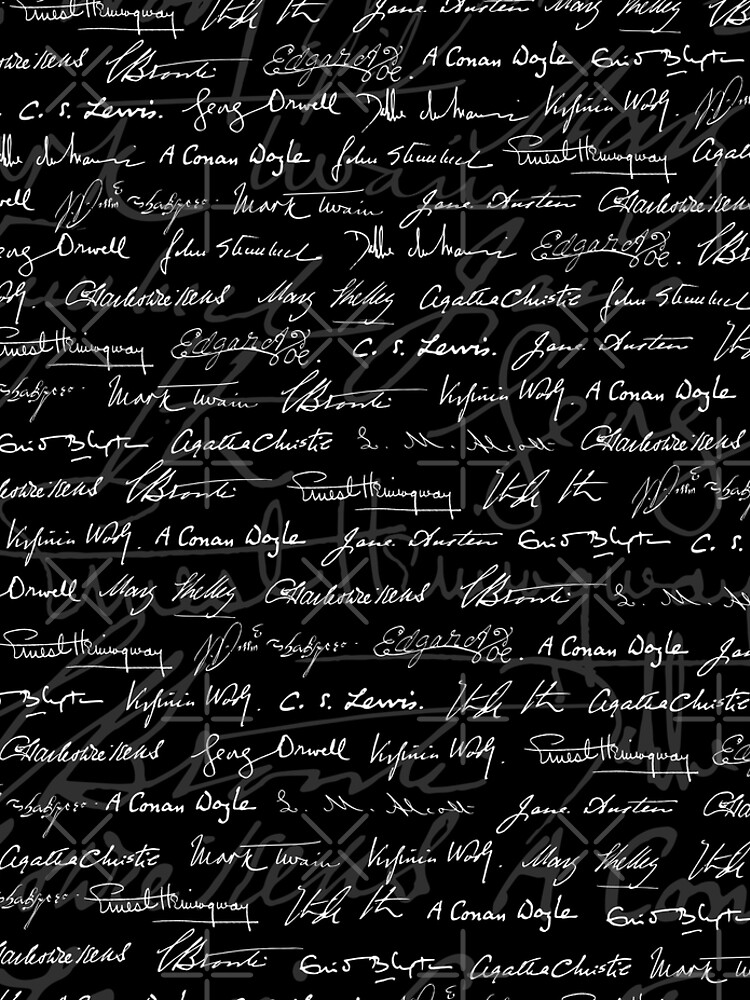 Ernest Hemingway Jane Austen Mary Shelley
Dickens CBronte Edgar A Poe. A Conan Doyle Enid Blyton
C. S. Lewis. Georg Orwell Virginia Woolf.
A Conan Doyle John Steinbeck Ernest Hemingway Agatha
well Mark Twain Jane Austen Charles Dickens
Georg Orwell John Steinbeck Edgar A Poe.
Charles Dickens Mary Shelley Agatha Christie John Steinbeck
Ernest Hemingway Edgar A Poe. C. S. Lewis. Jane Austen
Mark Twain CBronte Virginia Woolf. A Conan Doyle
Enid Blyton Agatha Christie L. M. Alcott Charles Dickens
Charles Dickens CBronte Ernest Hemingway
Virginia Woolf. A Conan Doyle Jane Austen Enid Blyton C. S.
Orwell Mary Shelley Charles Dickens CBronte L. M. A
Ernest Hemingway Edgar A Poe. A Conan Doyle Jane
Blyton Virginia Woolf. C. S. Lewis. Agatha Christie
Charles Dickens Georg Orwell Virginia Woolf. Ernest Hemingway
A Conan Doyle L. M. Alcott Jane Austen
Agatha Christie Mark Twain Virginia Woolf. Mary Shelley
Ernest Hemingway A Conan Doyle Enid Blyton
Charles Dickens CBronte Enid Blyton Agatha Christie Mark Tw